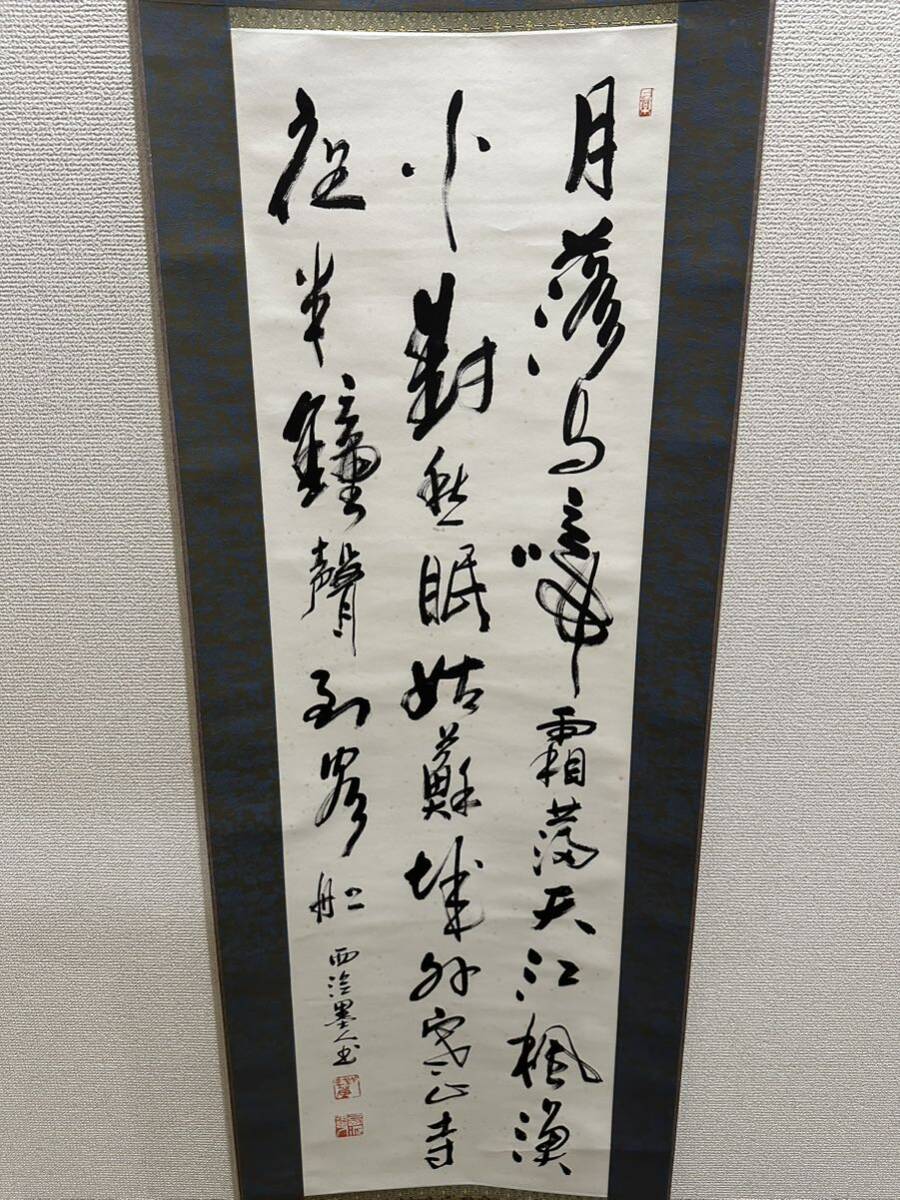 月落烏啼霜滿天江楓漁
火對愁眠姑蘇城外寒山寺
夜半鐘聲到客船
西泠墨人书